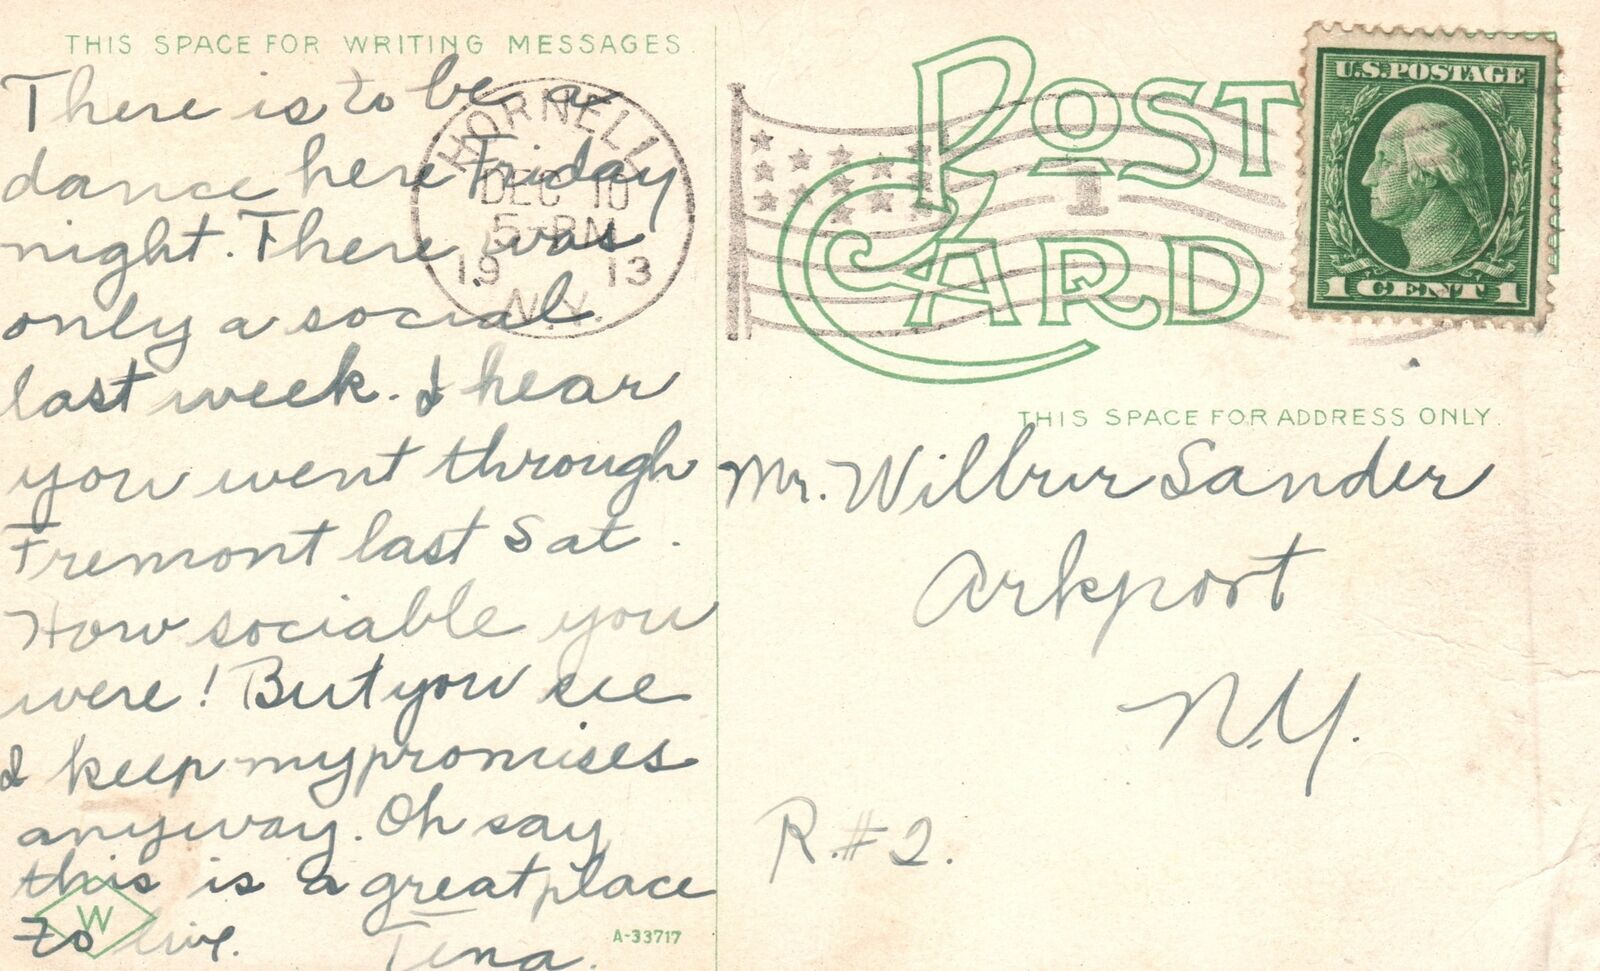 THIS SPACE FOR WRITING MESSAGES
There is to be a
dance here Friday
night. There was
only a social
last week. I hear
you went through
Fremont last Sat.
How sociable you
were! But you see
I keep my promises
anyway. Oh say
this is a great place
to live. Tena.
W
A-33717
HORNELL
DEC 10
5-PM
19 13
N.Y.
1
POST
CARD
U.S. POSTAGE
1 CENT 1
THIS SPACE FOR ADDRESS ONLY.
Mr. Wilbur Sander
Arkport
N.Y.
R.#2.